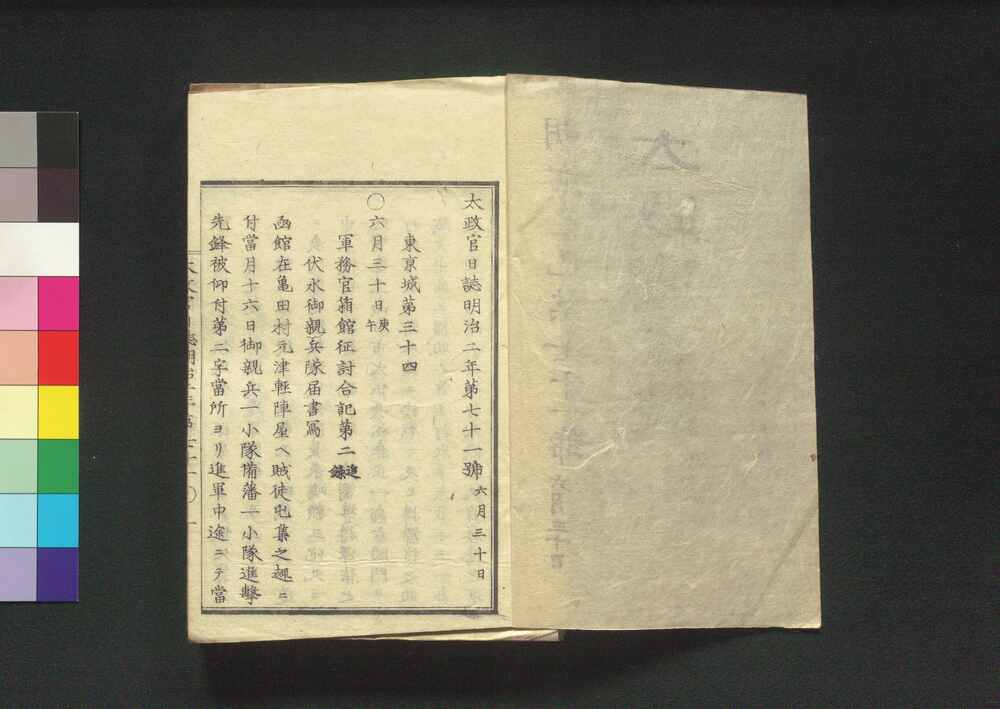 太政官日誌明治二年第七十一號 六月三十日
東京城第三十四
〇六月三十日庚午
軍務官箱館征討合記第二追録
伏水御親兵隊届書寫
函館在亀田村元津軽陣屋ヘ賊徒屯集之趣ニ
付當月十六日御親兵一小隊備藩一小隊進撃
先鋒被仰付第二字當所ヨリ進軍中途ニテ當